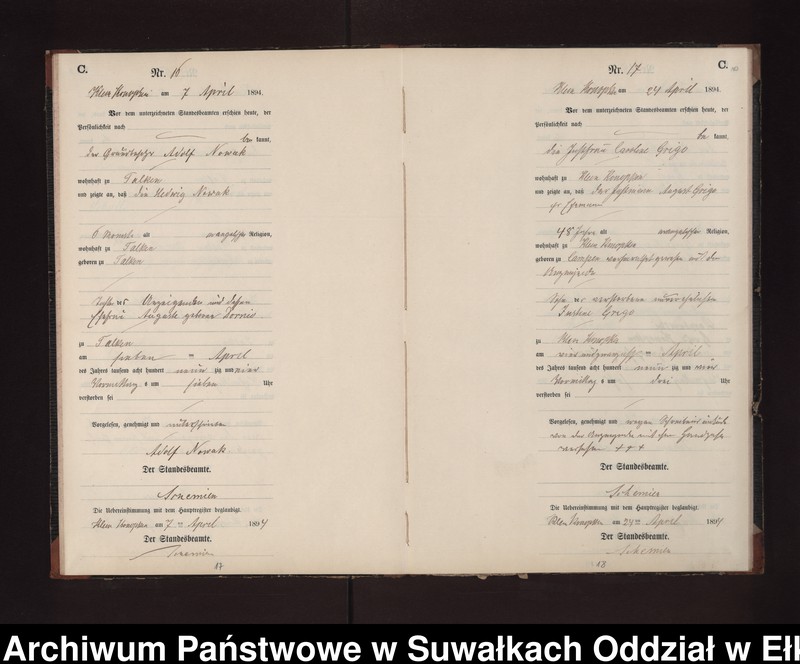 C.
Nr. 16
Klein Konopken am 7 April 1894.
Vor dem unterzeichneten Standesbeamten erschien heute, der
Persönlichkeit nach
be kannt,
der Adolf Nowak
wohnhaft zu Talken
und zeigte an, daß die Hedwig Nowak
6 Monate alt evangelischer Religion,
wohnhaft zu Talken
geboren zu Talken
Tochter des Anzeigenden und dessen
Ehefrau Auguste geborene
zu Talken
am sieben ten April
des Jahres tausend acht hundert neun zig und vier
Vormittag s um sieben Uhr
verstorben sei
Vorgelesen, genehmigt und unterschrieben
Adolf Nowak
Der Standesbeamte.
Die Uebereinstimmung mit dem Hauptregister beglaubigt.
Klein Konopken am 7 ten April 1894
Der Standesbeamte.
17
Nr. 17
C.
Klein Konopken am 24 April 1894.
Vor dem unterzeichneten Standesbeamten erschien heute, der
Persönlichkeit nach
be kannt,
die Caroline Grigo
wohnhaft zu Klein Konopken
und zeigte an, daß der August Grigo
ihr Ehemann
48 Jahre alt evangelischer Religion,
wohnhaft zu Klein Konopken
geboren zu
Sohn der verstorbenen unverehelichten
Justine Grigo
zu Klein Konopken
am vier und zwanzigsten April
des Jahres tausend acht hundert neun zig und vier
Vormittag s um drei Uhr
verstorben sei
Vorgelesen, genehmigt und wegen
von der
versehen + + +
Der Standesbeamte.
Die Uebereinstimmung mit dem Hauptregister beglaubigt.
Klein Konopken am 24 ten April 1894
Der Standesbeamte.
18
Archiwum Państwowe w Suwałkach Oddział w Ełk